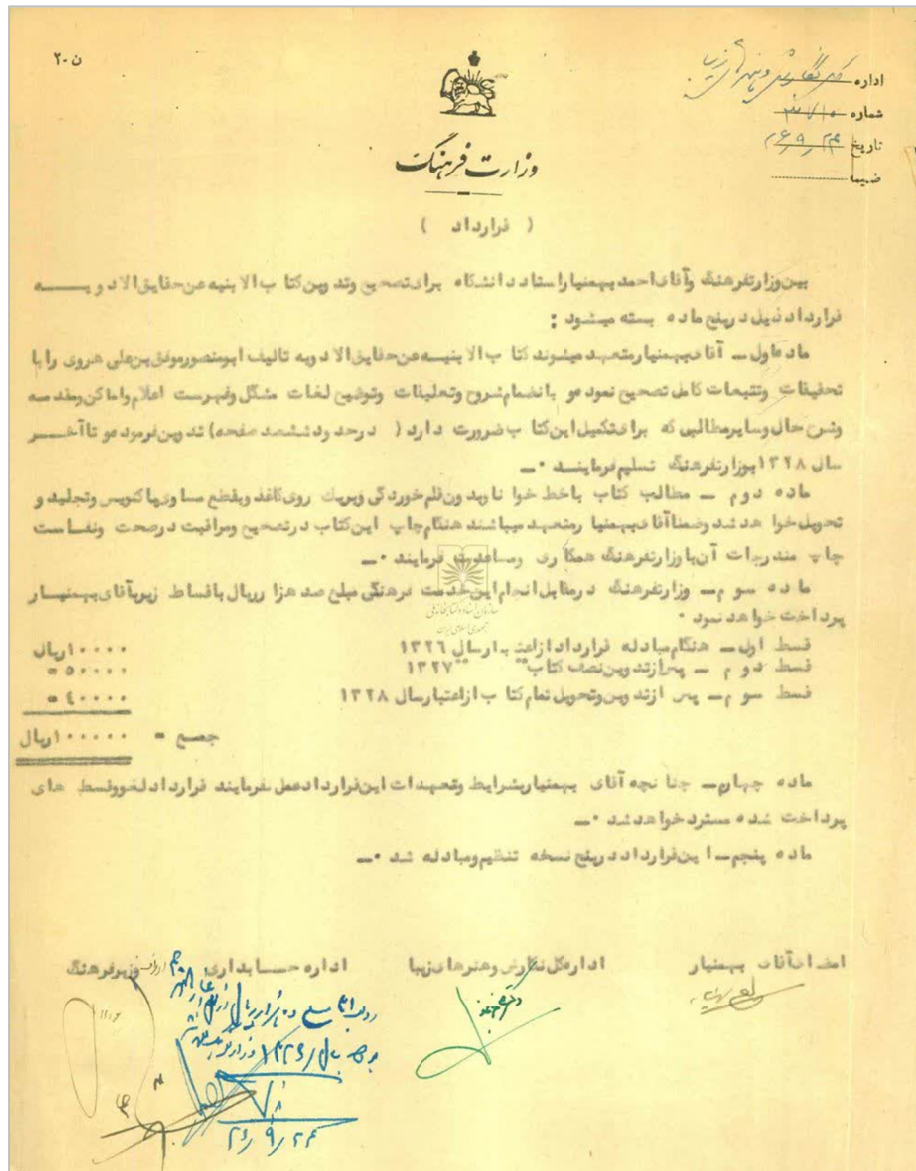 ن-۲۰
اداره کل نگارش و هنرهای زیبا
شماره ۳۷۱۰
تاریخ ۲۶٫۹٫۲۴
ضمیمه
وزارت فرهنگ
( قرارداد )
بین وزارت فرهنگ و آقای احمد بهمنیار استاد دانشگاه برای تصحیح و تدوین کتاب الابنیه عن حقایق الادویه
قرارداد ذیل در پنج ماده بسته میشود :
ماده اول ــ آقای بهمنیار متعهد میشوند کتاب الابنیه عن حقایق الادویه تالیف ابومنصور موفق بن علی هروی را با
تحقیقات وتتبعات کامل تصحیح نموده و بانضمام شروح وتعلیقات وتوضیح لغات مشکل وفهرست اعلام واماکن ومقدمه
وشرح حال وسایر مطالبی که برای تکمیل این کتاب ضرورت دارد ( در حدود ششصد صفحه) تدوین فرموده و تا آخر
سال ۱۳۲۸ بوزارت فرهنگ تسلیم فرمایند ۰ــ
ماده دوم ــ مطالب کتاب باخط خوانا وبدون قلم خوردگی وبریک روی کاغذ وبقطع مساوی پاکنویس وتجلید و
تحویل خواهد شد وضمنا آقای بهمنیار متعهد میباشند هنگام چاپ این کتاب در تصحیح ومراقبت در صحت ونفاست
چاپ مندرجات آن با وزارت فرهنگ همکاری ومساعدت فرمایند ۰ــ
ماده سوم ــ وزارت فرهنگ در مقابل انجام این خدمت فرهنگی مبلغ صد هزار ریال باقساط زیر بآقای بهمنیار
پرداخت خواهد نمود ۰
قسط اول ــ هنگام مبادله قرارداد از اعتبار سال ۱۳۲۶ ۱۰۰۰۰ریال
قسط دوم ــ پس از تدوین نصف کتاب " ۱۳۲۷ ۵۰۰۰۰ =
قسط سوم ــ پس از تدوین وتحویل تمام کتاب از اعتبار سال ۱۳۲۸ ۴۰۰۰۰ =
جمع = ۱۰۰۰۰۰ریال
ماده چهارم ــ چنانچه آقای بهمنیار بشرایط وتعهدات این قرارداد عمل نفرمایند قرارداد لغو وقسط های
پرداخت شده مسترد خواهد شد ۰ــ
ماده پنجم ــ این قرارداد در پنج نسخه تنظیم ومبادله شد ۰ــ
امضای آقای بهمنیار اداره کل نگارش وهنرهای زیبا اداره حسابداری وزیر فرهنگ
سازمان اسناد و کتابخانه ملی
جمهوری اسلامی ایران
۲۶٫۹٫۲۴